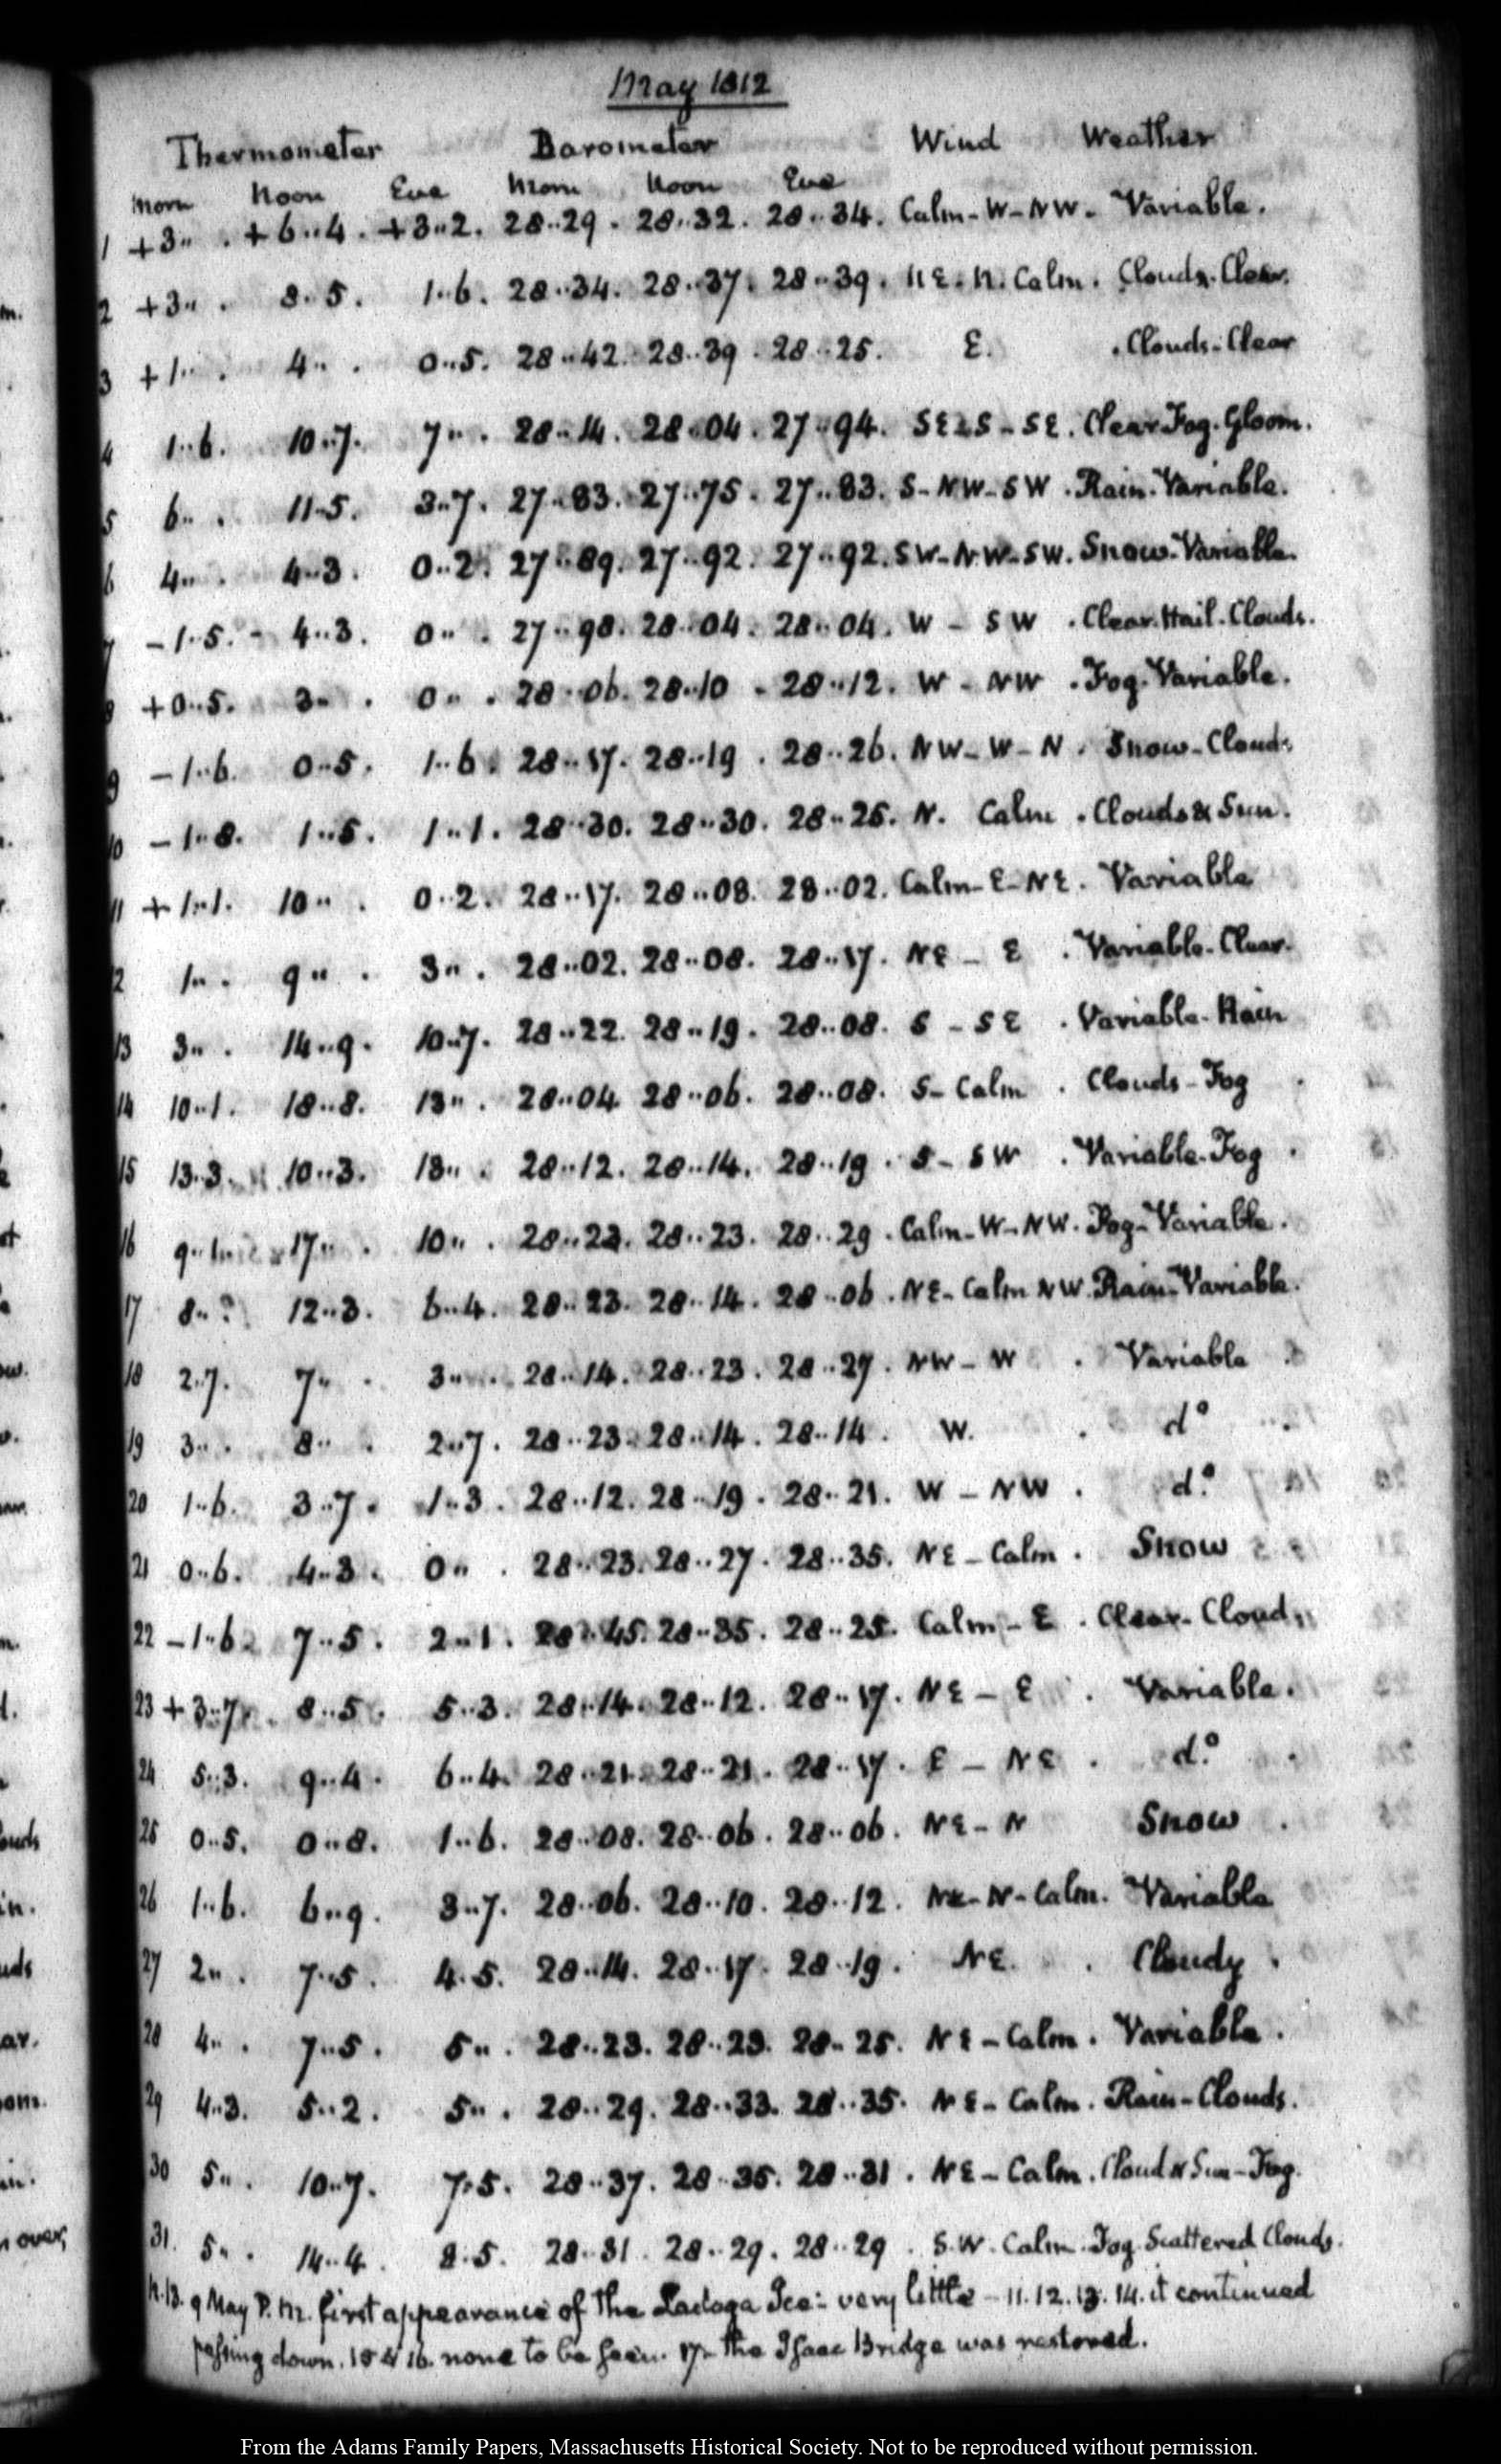 May 1812
Thermometer Barometer Wind Weather
Morn Noon Eve Morn Noon Eve
1 +3.. . +6..4. +3..2. 28..29. 28..32. 28..34. Calm-W-NW. Variable.
2 +3.. . 8..5. 1..6. 28..34. 28..37. 28..39. NE. N. Calm. Clouds-Clear.
3 +1.. . 4.. . 0..5. 28..42. 28..39. 28..25. E. Clouds-Clear
4 1..6. 10..7. 7.. . 28..14. 28..04. 27..94. SE&S-SE. Clear-Fog-Gloom.
5 6.. . 11..5. 3..7. 27..83. 27..75. 27..83. S-NW-SW. Rain-Variable.
6 4.. . 4..3. 0..2. 27..89. 27..92. 27..92. SW-NW-SW. Snow-Variable.
7 -1..5. - 4..3. 0.. . 27..98. 28..04. 28..04. W - SW. Clear-Hail-Clouds.
8 +0..5. 3.. . 0.. . 28..06. 28..10. 28..12. W - NW. Fog-Variable.
9 -1..6. 0..5. 1..6. 28..17. 28..19. 28..26. NW-W-N. Snow-Clouds
10 -1..8. 1..5. 1..1. 28..30. 28..30. 28..25. N. Calm. Clouds & Sun.
11 +1..1. 10.. . 0..2. 28..17. 28..08. 28..02. Calm-E-NE. Variable
12 1.. . 9.. . 3.. . 28..02. 28..08. 28..17. NE - E. Variable-Clear.
13 3.. . 14..9. 10..7. 28..22. 28..19. 28..08. S - SE. Variable-Rain
14 10..1. 18..8. 13.. . 28..04 28..06. 28..08. S- Calm. Clouds-Fog
15 13..3. 10..3. 13.. . 28..12. 28..14. 28..19. S-SW. Variable-Fog.
16 9.. 17.. . 10.. . 28..23. 28..23. 28..29. Calm-W-NW. Fog-Variable.
17 8..? 12..3. 6..4. 28..23. 28..14. 28..06. NE-Calm NW. Rain-Variable.
18 2..7. 7.. . 3.. . 28..14. 28..23. 28..27. NW-W. Variable
19 3.. . 8.. . 2..7. 28..23. 28..14. 28..14. W. do
20 1..6. 3..7. 1..3. 28..12. 28..19. 28..21. W - NW. do.
21 0..6. 4..3. 0.. . 28..23. 28..27. 28..35. NE-Calm. Snow
22 -1..6. 7..5. 2..1. 28..45. 28..35. 28..25. Calm-E. Clear-Clouds
23 +3..7. 8..5. 5..3. 28..14. 28..12. 28..17. NE - E. Variable.
24 5..3. 9..4. 6..4. 28..21. 28..21. 28..17. E - NE. do.
25 0..5. 0..8. 1..6. 28..08. 28..06. 28..06. NE-N Snow.
26 1..6. 6..9. 3..7. 28..06. 28..10. 28..12. NE-N-Calm. Variable
27 2.. . 7..5. 4..5. 28..14. 28..17. 28..19. NE. Cloudy.
28 4.. . 7..5. 5.. . 28..23. 28..23. 28..25. NE-Calm. Variable.
29 4..3. 5..2. 5.. . 28..29. 28..33. 28..35. NE-Calm. Rain-Clouds.
30 5.. . 10..7. 7..5. 28..37. 28..35. 28..31. NE-Calm. Cloud & Sun-Fog.
31. 5.. . 14..4. 8..5. 28..31. 28..29. 28..29. S.W. Calm. Fog Scattered Clouds.
N.B. 9 May P.M. first appearance of the Ladoga Ice: very little - 11. 12. 13. 14. it continued
passing down. 15 & 16. none to be seen. 17. the Isaac Bridge was restored.
From the Adams Family Papers, Massachusetts Historical Society. Not to be reproduced without permission.